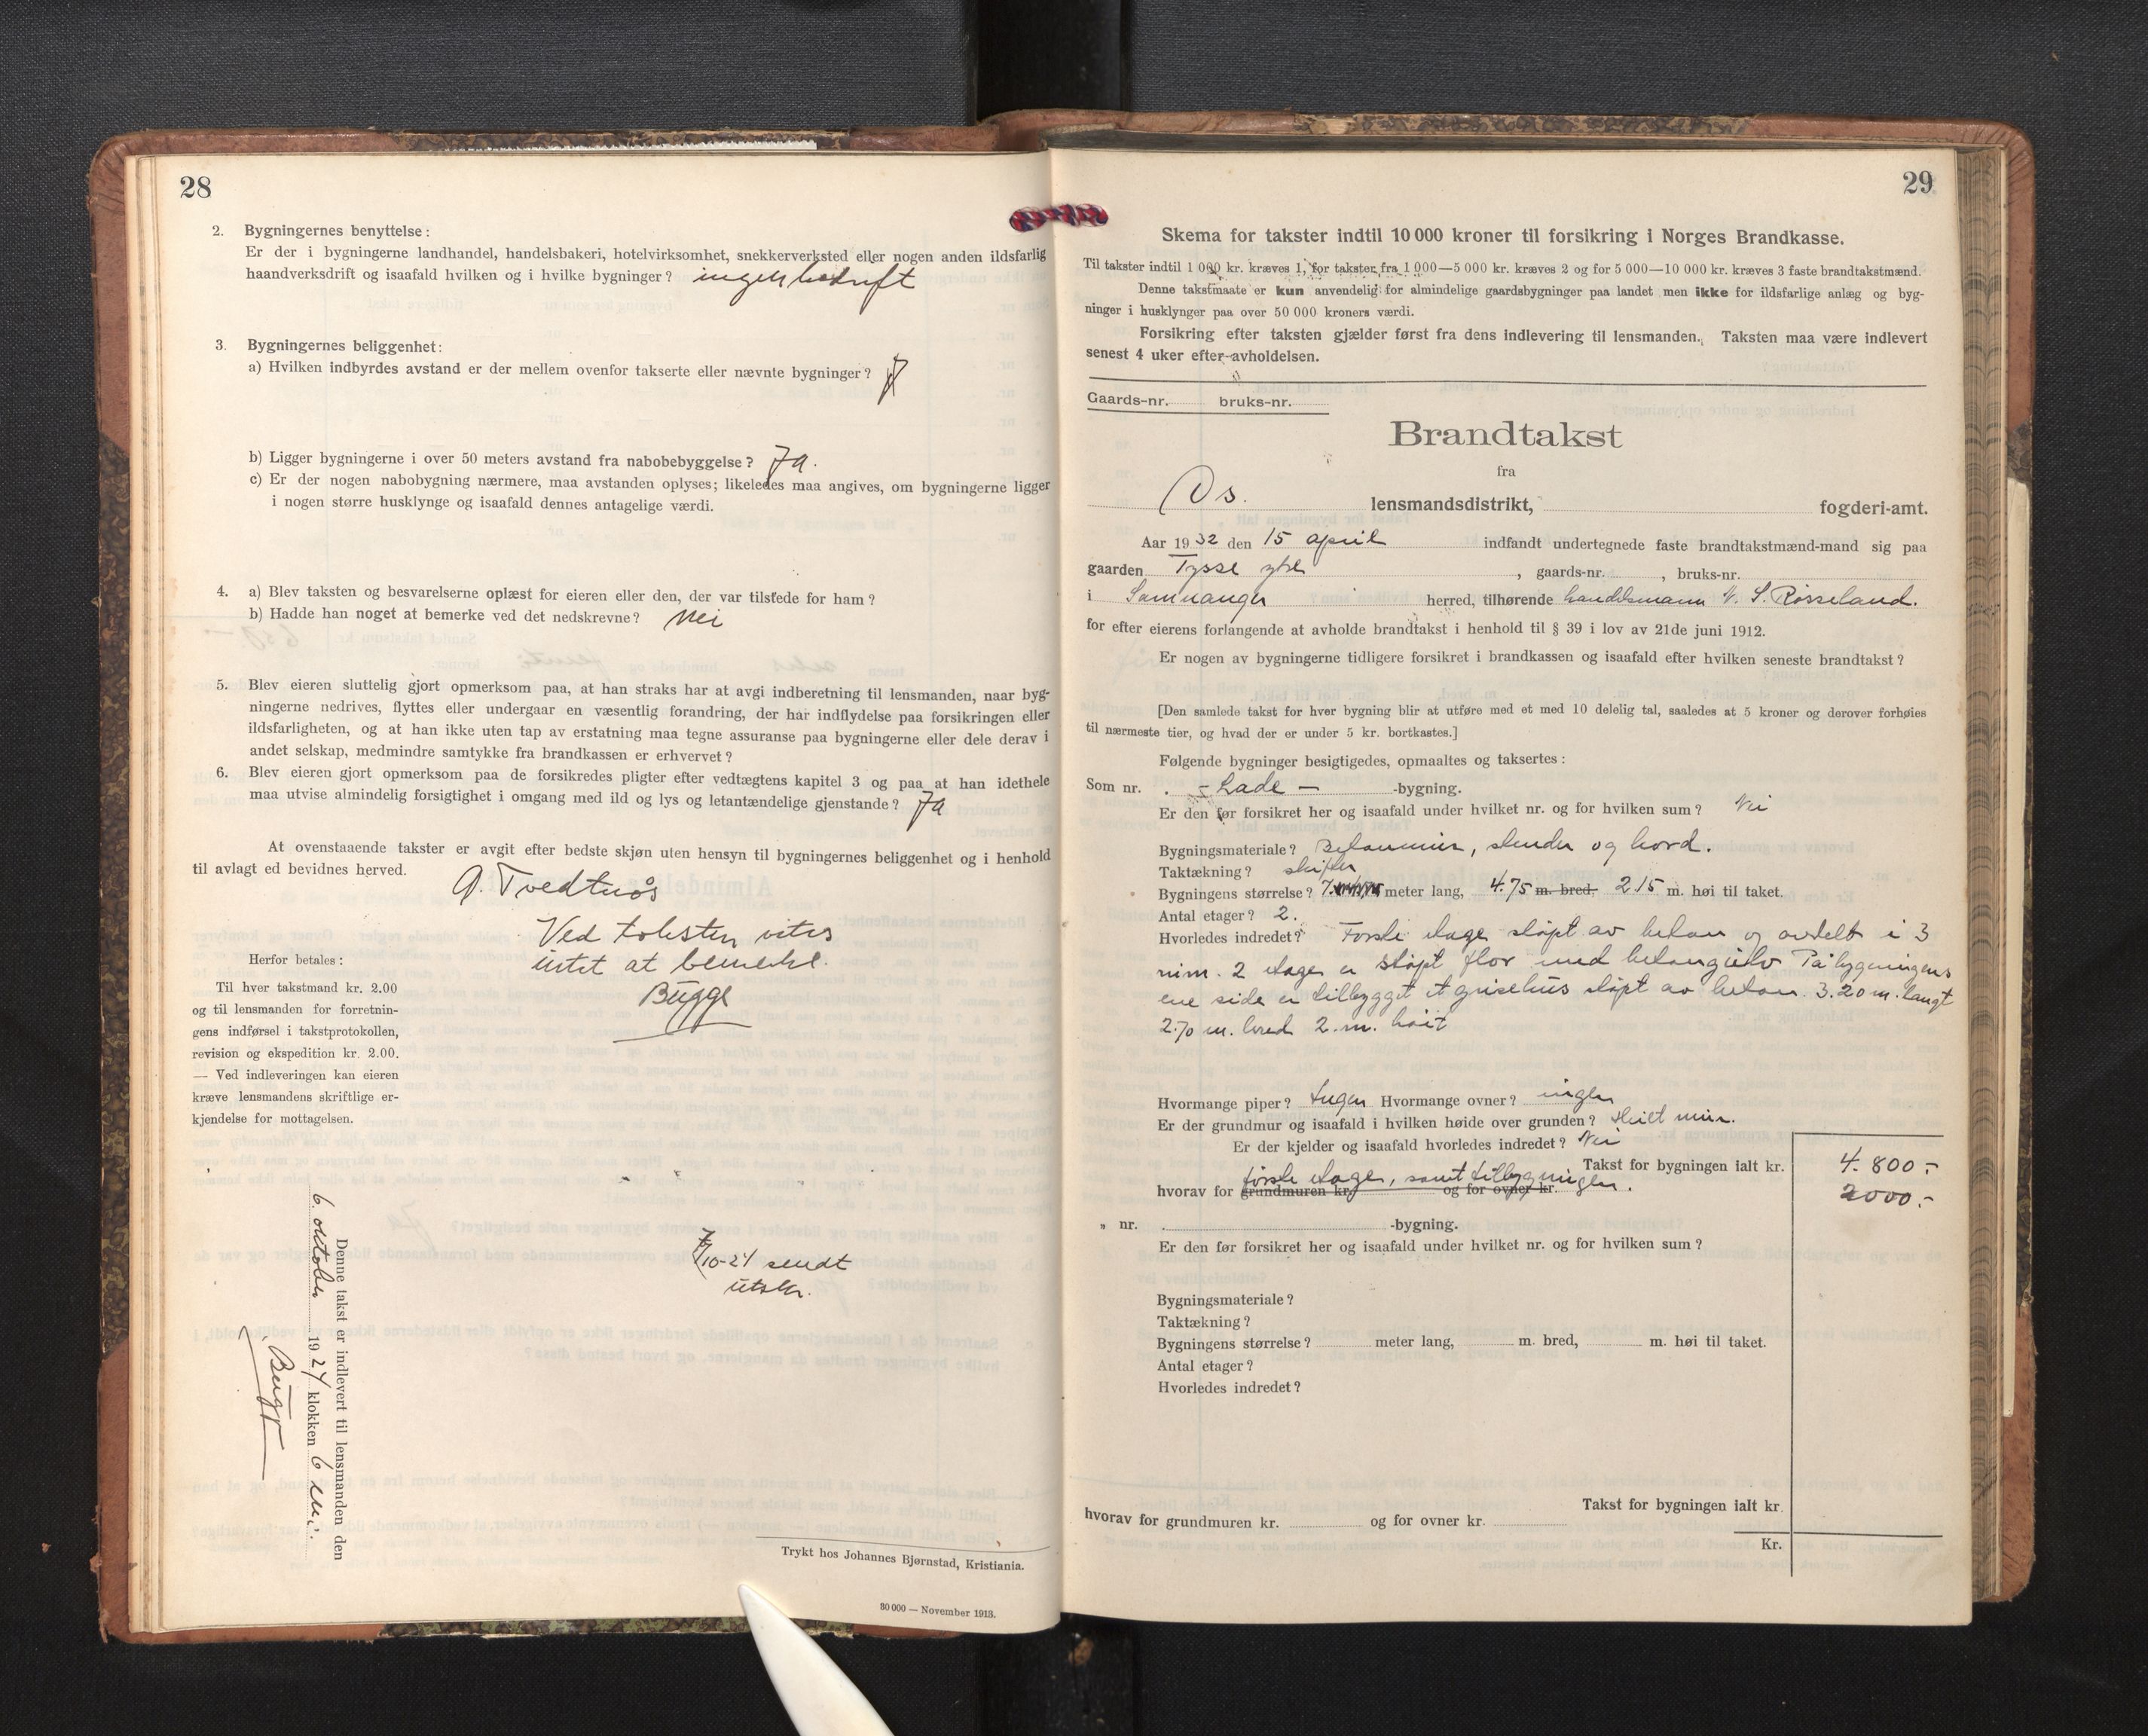 28
2. Bygningernes benyttelse:
Er der i bygningerne landhandel, handelsbakeri, hotelvirksomhet, snekkerverksted eller nogen anden ildsfarlig
haandverksdrift og isaafald hvilken og i hvilke bygninger? ingen bedrift
3. Bygningernes beliggenhet:
a) Hvilken indbyrdes avstand er der mellem ovenfor takserte eller nævnte bygninger?
b) Ligger bygningerne i over 50 meters avstand fra nabobebyggelse? Ja.
c) Er der nogen nabobygning nærmere, maa avstanden oplyses; likeledes maa angives, om bygningerne ligger
i nogen større husklynge og isaafald dennes antagelige værdi.
4. a) Blev taksten og besvarelserne oplæst for eieren eller den, der var tilstede for ham?
b) Hadde han noget at bemerke ved det nedskrevne? Nei
5. Blev eieren sluttelig gjort opmerksom paa, at han straks har at avgi indberetning til lensmanden, naar byg-
ningerne nedrives, flyttes eller undergaar en væsentlig forandring, der har indflydelse paa forsikringen eller
ildsfarligheten, og at han ikke uten tap av erstatning maa tegne assuranse paa bygningerne eller dele derav i
andet selskap, medmindre samtykke fra brandkassen er erhvervet?
6. Blev eieren gjort opmerksom paa de forsikredes pligter efter vedtægtens kapitel 3 og paa at han idethele
maa utvise almindelig forsigtighet i omgang med ild og lys og letantændelige gjenstande? Ja
At ovenstaaende takster er avgit efter bedste skjøn uten hensyn til bygningernes beliggenhet og i henhold
til avlagt ed bevidnes herved.
Tvedtnås
Ved taksten vites
intet at bemerke.
Bugge
Herfor betales:
Til hver takstmand kr. 2.00
og til lensmanden for forretnin-
gens indførsel i takstprotokollen,
revision og ekspedition kr. 2.00.
— Ved indleveringen kan eieren
kræve lensmandens skriftlige er-
kjendelse for mottagelsen.
Denne takst er indlevert til lensmanden den
6. oktober 1924 klokken 6 em.
Bugge
7/10-24 sendt
utskr.
Trykt hos Johannes Bjørnstad, Kristiania.
30 000 — November 1913.
29
Skema for takster indtil 10 000 kroner til forsikring i Norges Brandkasse.
Til takster indtil 1 000 kr. kræves 1, for takster fra 1 000—5 000 kr. kræves 2 og for 5 000—10 000 kr. kræves 3 faste brandtakstmænd.
Denne takstmaate er kun anvendelig for almindelige gaardsbygninger paa landet men ikke for ildsfarlige anlæg og byg-
ninger i husklynger paa over 50 000 kroners værdi.
Forsikring efter taksten gjælder først fra dens indlevering til lensmanden. Taksten maa være indlevert
senest 4 uker efter avholdelsen.
Gaards-nr. bruks-nr.
Brandtakst
fra
Os. lensmandsdistrikt, fogderi-amt.
Aar 1932 den 15 april indfandt undertegnede faste brandtakstmænd-mand sig paa
gaarden Tysse ytre, gaards-nr. , bruks-nr.
i Samnanger herred, tilhørende handelsmann N. S. Røsseland.
for efter eierens forlangende at avholde brandtakst i henhold til § 39 i lov av 21de juni 1912.
Er nogen av bygningerne tidligere forsikret i brandkassen og isaafald efter hvilken seneste brandtakst?
[Den samlede takst for hver bygning blir at utføre med et med 10 delelig tal, saaledes at 5 kroner og derover forhøies
til nærmeste tier, og hvad der er under 5 kr. bortkastes.]
Følgende bygninger besigtigedes, opmaaltes og taksertes:
Som nr. - Lade - -bygning.
Er den før forsikret her og isaafald under hvilket nr. og for hvilken sum? Nei
Bygningsmateriale? Betonmur, stender og bord.
Taktækning? skifer
Bygningens størrelse? 7. meter lang, 4.75 m. bred, 2.15 m. høi til taket.
Antal etager? 2.
Hvorledes indredet? Første etage støpt av beton og avdelt i 3
rum. 2 etage er støpt flor med betongulv På bygningens
ene side er tilbygget et grisehus støpt av beton. 3.20 m. langt
2.70 m. bred 2. m. høit
Hvormange piper? Ingen Hvormange ovner? ingen
Er der grundmur og isaafald i hvilken høide over grunden? Heilt mur.
Er der kjelder og isaafald hvorledes indredet? Nei
Takst for bygningen ialt kr. 4.800.-
første etage, samt tilbygningen.
hvorav for grundmuren kr. og for ovner kr. 2000.-
„ nr. -bygning.
Er den før forsikret her og isaafald under hvilket nr. og for hvilken sum?
Bygningsmateriale?
Taktækning?
Bygningens størrelse? meter lang, m. bred, m. høi til taket.
Antal etager?
Hvorledes indredet?
Takst for bygningen ialt kr.
hvorav for grundmuren kr. og for ovner kr.
Kr.